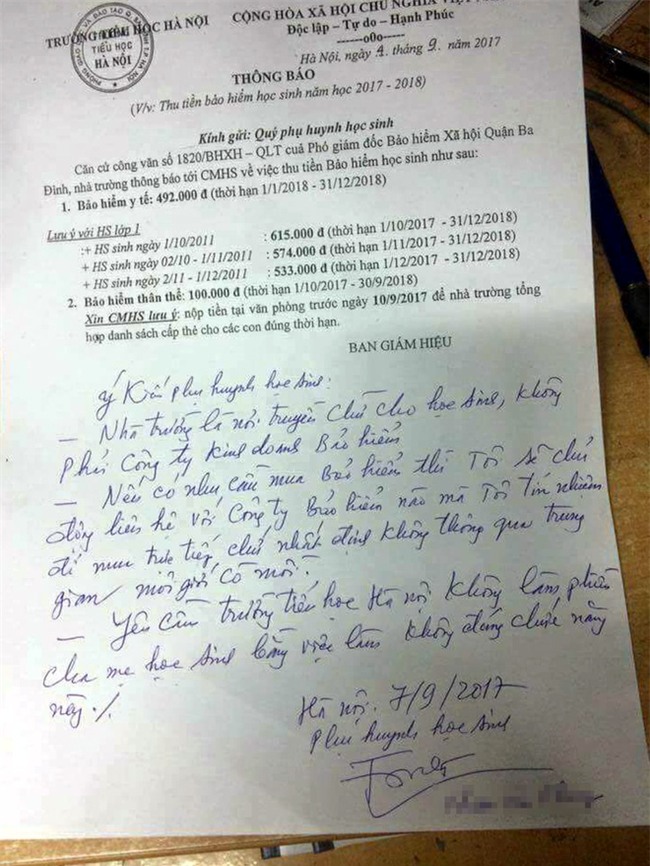 TRƯỜNG TIỂU HỌC HÀ NỘI
CỘNG HÒA XÃ HỘI CHỦ NGHĨA VIỆT
TIỂU HỌC
HÀ NỘI
Độc lập – Tự do – Hạnh Phúc
------o0o------
Hà Nội, ngày 4 tháng 9 năm 2017
THÔNG BÁO
(V/v: Thu tiền bảo hiểm học sinh năm học 2017 - 2018)
Kính gửi: Quý phụ huynh học sinh
Căn cứ công văn số 1820/BHXH – QLT cuả Phó giám đốc Bảo hiểm Xã hội Quận Ba
Đình, nhà trường thông báo tới CMHS về việc thu tiền Bảo hiểm học sinh như sau:
1. Bảo hiểm y tế: 492.000 đ (thời hạn 1/1/2018 - 31/12/2018)
Lưu ý với HS lớp 1
:+ HS sinh ngày 1/10/2011 : 615.000 đ (thời hạn 1/10/2017 - 31/12/2018)
+ HS sinh ngày 02/10 - 1/11/2011 : 574.000 đ (thời hạn 1/11/2017 - 31/12/2018)
+ HS sinh ngày 2/11 - 1/12/2011 : 533.000 đ (thời hạn 1/12/2017 - 31/12/2018)
2. Bảo hiểm thân thể: 100.000 đ (thời hạn 1/10/2017 - 30/9/2018)
Xin CMHS lưu ý: nộp tiền tại văn phòng trước ngày 10/9/2017 để nhà trường tổng
hợp danh sách cấp thẻ cho các con đúng thời hạn.
BAN GIÁM HIỆU
ý Kiến phụ huynh học sinh:
— Nhà trường là nơi truyền chữ cho học sinh, không
phải Công ty Kinh doanh Bảo hiểm
— Nếu có nhu cầu mua Bảo hiểm thì Tôi sẽ chủ
động liên hệ với Công ty Bảo hiểm nào mà Tôi Tín nhiệm
để mua trực tiếp chứ nhất định không thông qua trung
gian môi giới cò mồi.
— Yêu cầu trường tiểu học Hà nội không làm phiền
cha mẹ học sinh bằng việc làm không đúng chức năng
này ./.
Hà nội. 7/9/2017
Phụ huynh học sinh